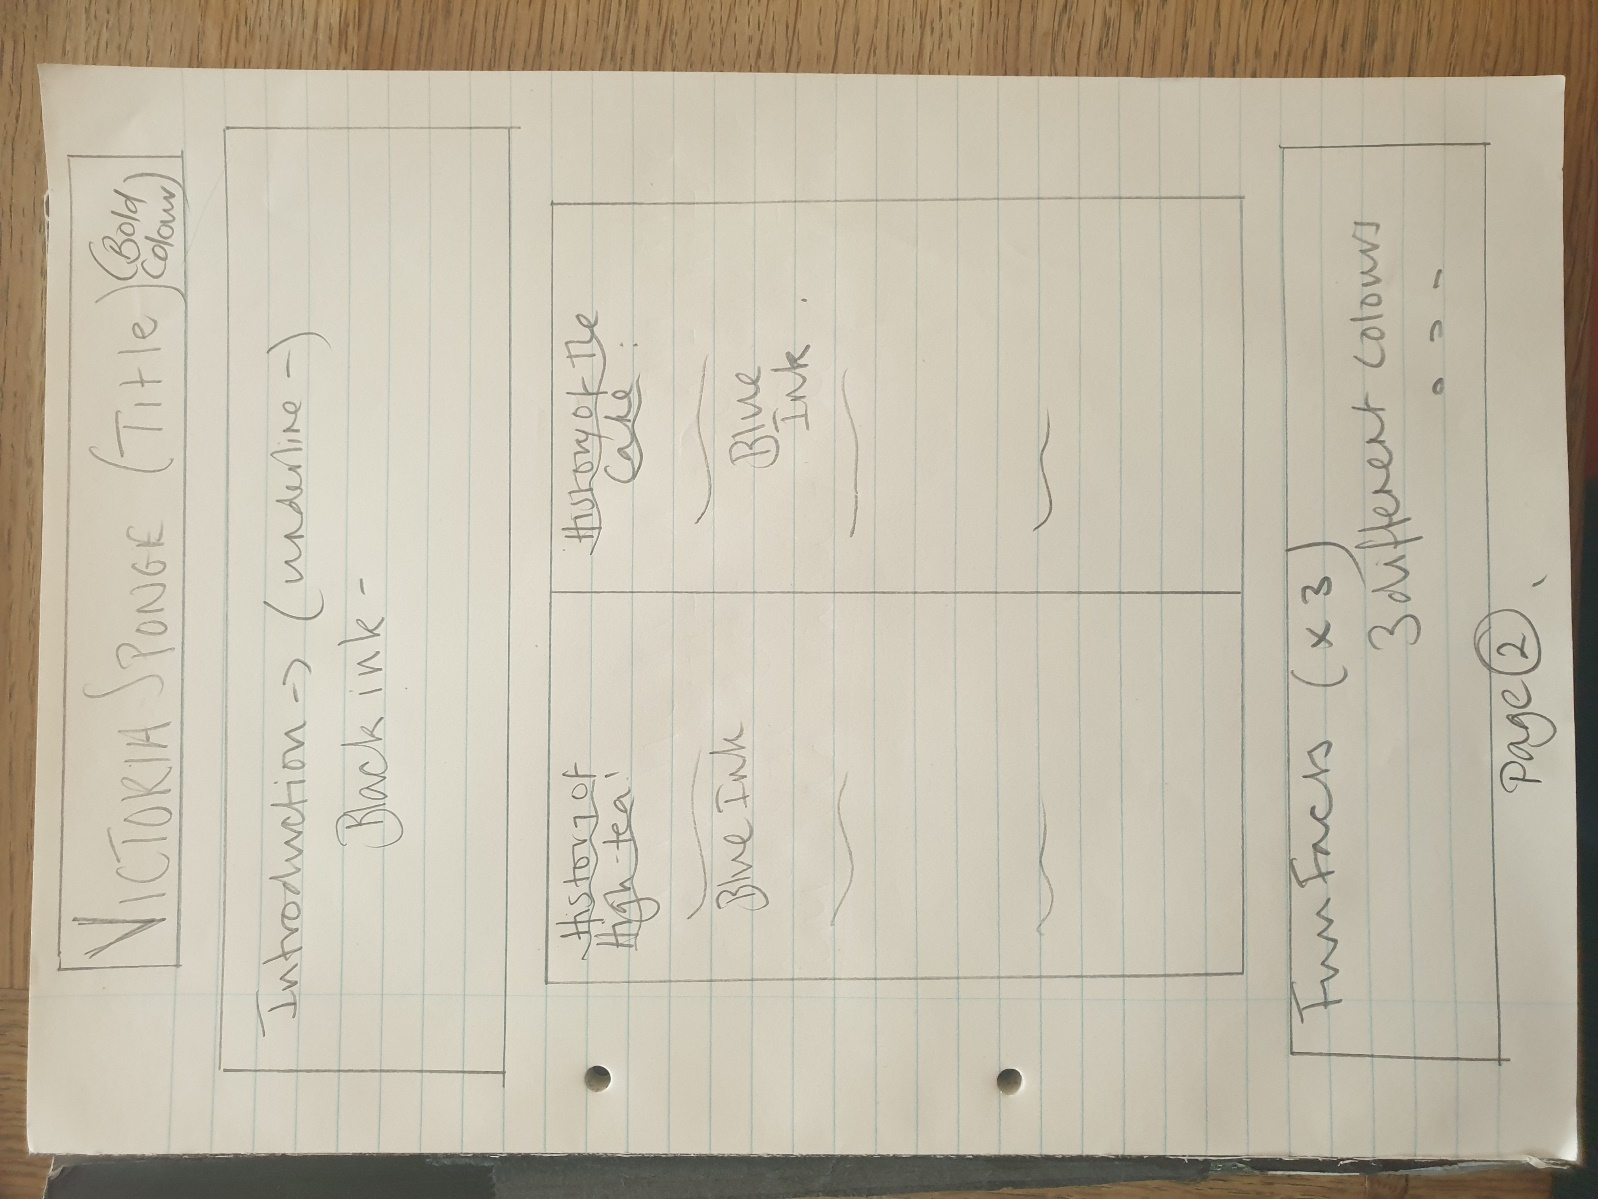 VICTORIA SPONGE (Title) (Bold
Colour)
Introduction -> (underline -)
Black ink -
History of
High-tea!
Blue Ink
History of the
Cake:
Blue
Ink.
Fun Facts (x3)
3 different colours
Page 2